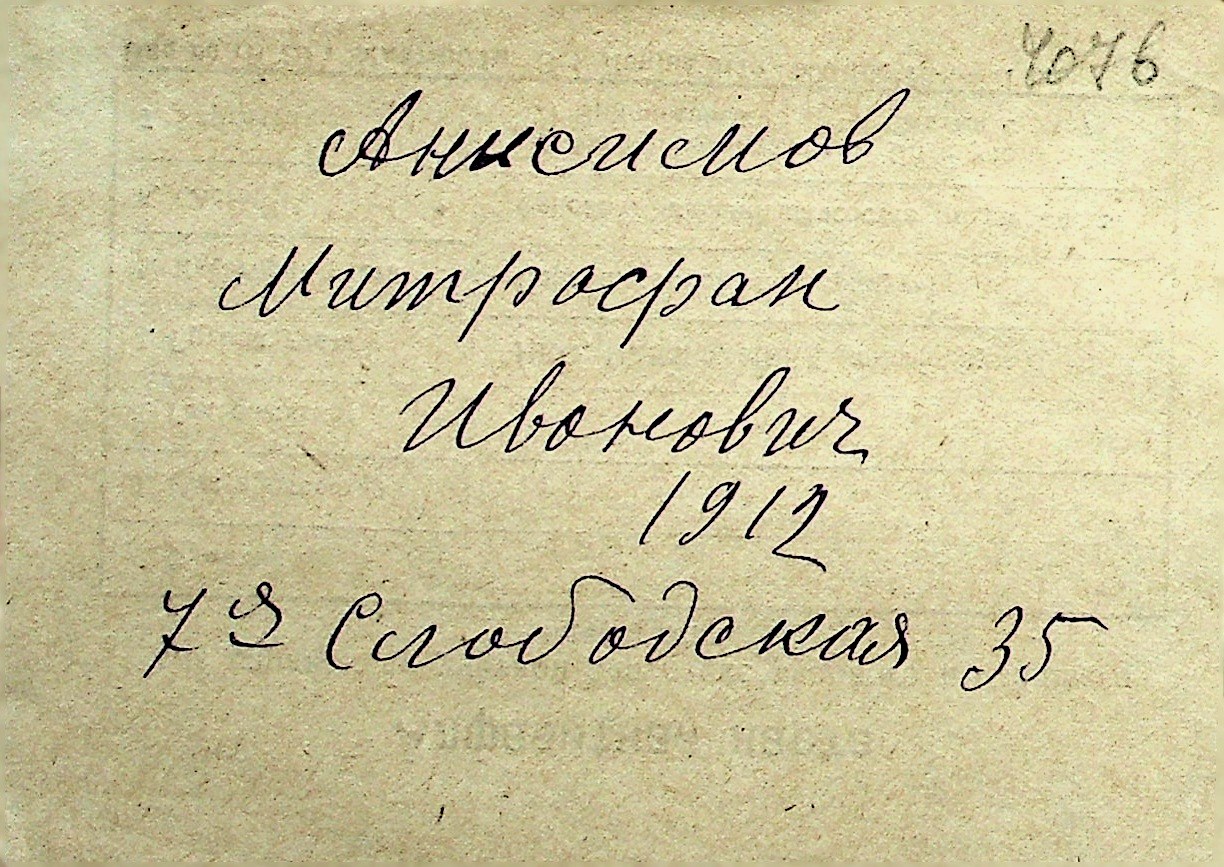 7076
Анисимов
Митрофан
Иванович
1912
7я Слободская 35